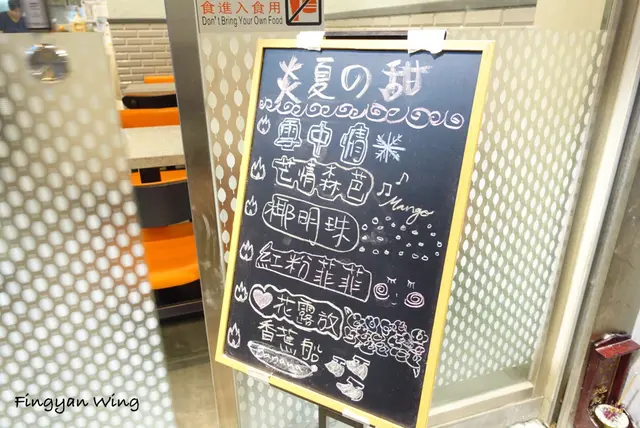 食進入食用
Don't Bring Your Own Food
炎夏の甜
雪中情
芒情森芭
Mango
椰明珠
紅粉菲菲
花露放
香蕉船
Banana
Fingyan Wing